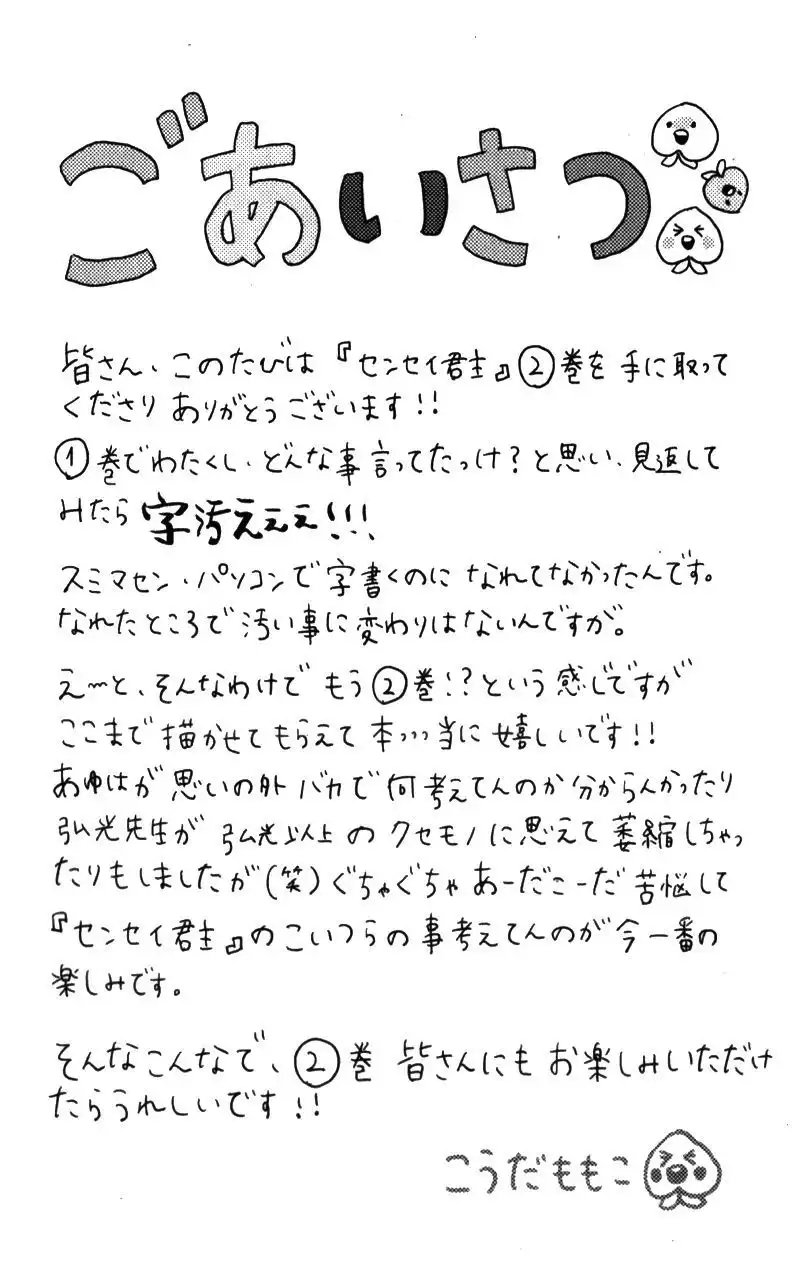 ごあいさつ
皆さん、このたびは『センセイ君主』②巻を手に取って
くださりありがとうございます!!
①巻でわたくし、どんな事言ってたっけ?と思い、見返して
みたら字汚えぇぇ!!!
スミマセン、パソコンで字書くのになれてなかったんです。
なれたところで汚い事に変わりはないんですが。
え〜と、そんなわけでもう②巻!?という感じですが
ここまで描かせてもらえて本、、、当に嬉しいです!!
あゆはが思いの外バカで何考えてんのか分からんかったり
弘光先生が弘光以上のクセモノに思えて萎縮しちゃっ
たりもしましたが(笑)ぐちゃぐちゃあーだこーだ苦悩して
『センセイ君主』のこいつらの事考えてんのが今一番の
楽しみです。
そんなこんなで、②巻 皆さんにもお楽しみいただけ
たらうれしいです!!
こうだももこ